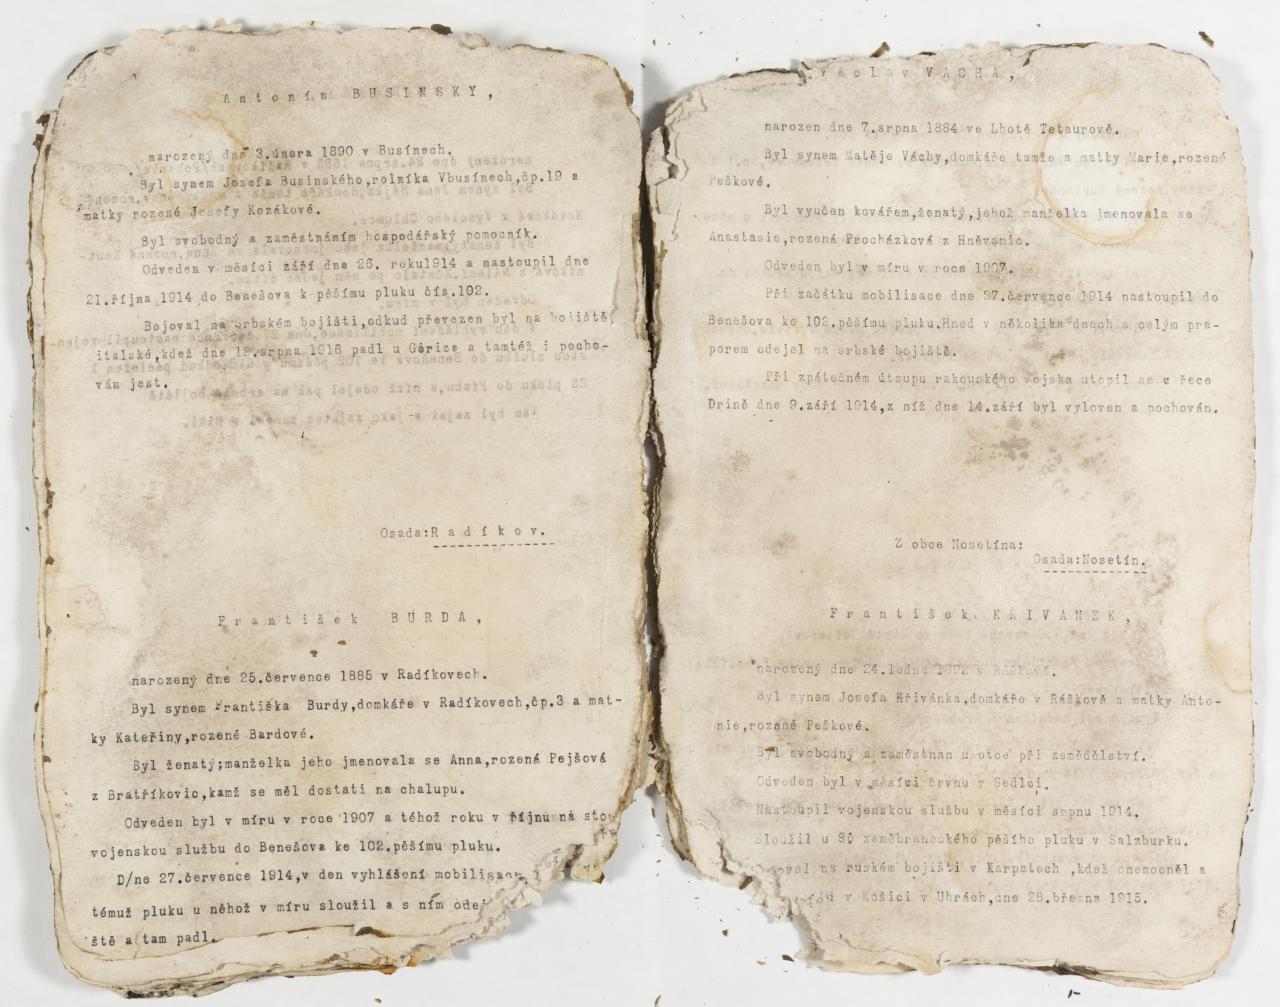 Antonín BUSINSKY,
narozený dne 3.února 1890 v Busínech.
Byl synem Josefa Businského,rolníka Vbusínech,čp.19 a
matky rozené Josefy Kozákové.
Byl svobodný a zaměstnáním hospodářský pomocník.
Odveden v měsíci září dne 26. roku1914 a nastoupil dne
21.října 1914 do Benešova k pěšímu pluku čís.102.
Bojoval na srbském bojišti,odkud převezen byl na bojiště
italské,kdež dne 12.srpna 1916 padl u Görice a tamtéž i pocho-
ván jest.
Osada:Radíkov.
František BURDA,
narozený dne 25.července 1885 v Radíkovech.
Byl synem Františka Burdy,domkáře v Radíkovech,čp.3 a mat-
ky Kateřiny,rozené Bardové.
Byl ženatý;manželka jeho jmenovala se Anna,rozená Pejšová
z Bratříkovic,kamž se měl dostati na chalupu.
Odveden byl v míru v roce 1907 a téhož roku v říjnu
vojenskou službu do Benešova ke 102.pěšímu pluku.
D/ne 27.července 1914,v den vyhlášení mobilisace
témuž pluku u něhož v míru sloužil a s ním
ště a tam padl.
Václav VÁCHA,
narozen dne 7.srpna 1884 ve Lhotě Tetaurově.
Byl synem Matěje Váchy,domkáře tamže a matky Marie,rozené
Peškové.
Byl vyučen kovářem,ženatý,jehož manželka jmenovala se
Anastasie,rozená Procházková z Hněvanic.
Odveden byl v míru v roce 1907.
Při začátku mobilisace dne 27.července 1914 nastoupil do
Benešova ke 102.pěšímu pluku.Hned v několika dnech s celým pra-
porem odejel na srbské bojiště.
Při zpátečném útsupu rakouského vojska utopil se v řece
Drině dne 9.září 1914,z níž dne 14.září byl vyloven a pochován.
Z obce Nosetína:
Osada:Nosetín.
František KŘIVANEK,
narozený dne 24.ledna v
Byl synem Josefa Křivánka,domkáře v Ráškově a matky Anto-
nie,rozené Peškové.
Byl svobodný a zaměstnan u otce při zemědělství.
Odveden byl v měsíci črvnu v Sedlci.
Nastoupil vojenskou službu v měsíci srpnu 1914.
Sloužil u zeměbraneckého pěšího pluku v Salzburku.
na ruském bojišti v Karpatech ,kdež onemocněl a
v Košici v Uhrách,dne 28.března 1915.